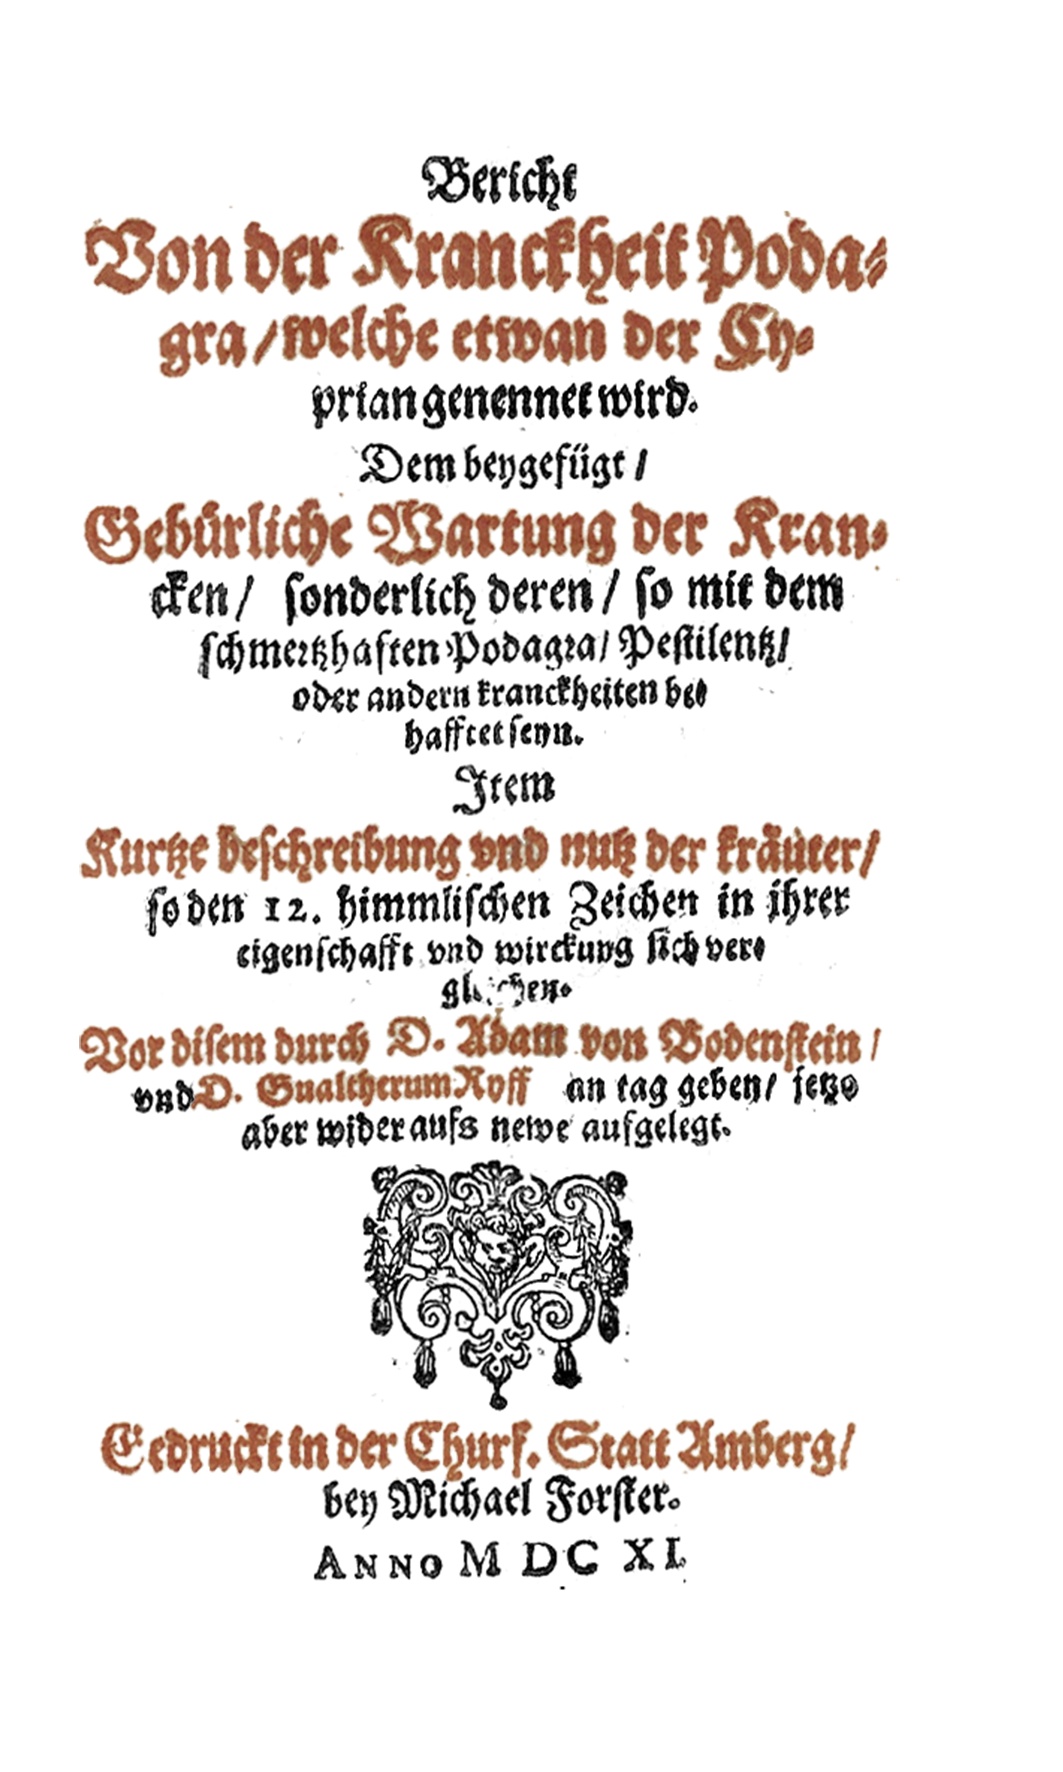 Bericht
Von der Kranckheit Poda-
gra / welche etwan der Cy-
prian genennet wird.
Dem beygefügt /
Gebürliche Wartung der Kran-
cken / sonderlich deren / so mit dem
schmertzhaften Podagra / Pestilentz /
oder andern kranckheiten be-
hafftet seyn.
Item
Kurtze beschreibung vnd nutz der kräuter /
so den 12. himmlischen Zeichen in ihrer
eigenschafft vnd wirckung sich ver-
gleichen.
Vor disem durch D. Adam von Bodenstein /
vnd D. Gualtherum Ryff an tag geben / jetzo
aber wider aufs newe aufgelegt.
Gedruckt in der Churf. Statt Amberg /
bey Michael Forster.
ANNO M DC XI.